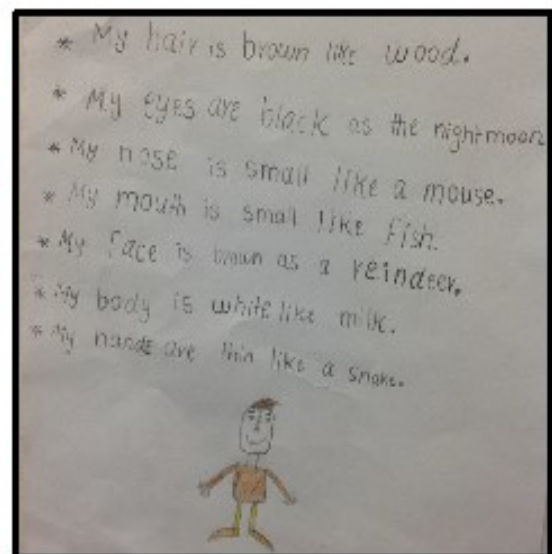 * My hair is brown like wood.
* My eyes are black as the nightmoon
* My nose is small like a mouse.
* My mouth is small like fish.
* My face is brown as a reindeer.
* My body is white like milk.
* My hands are thin like a snake.